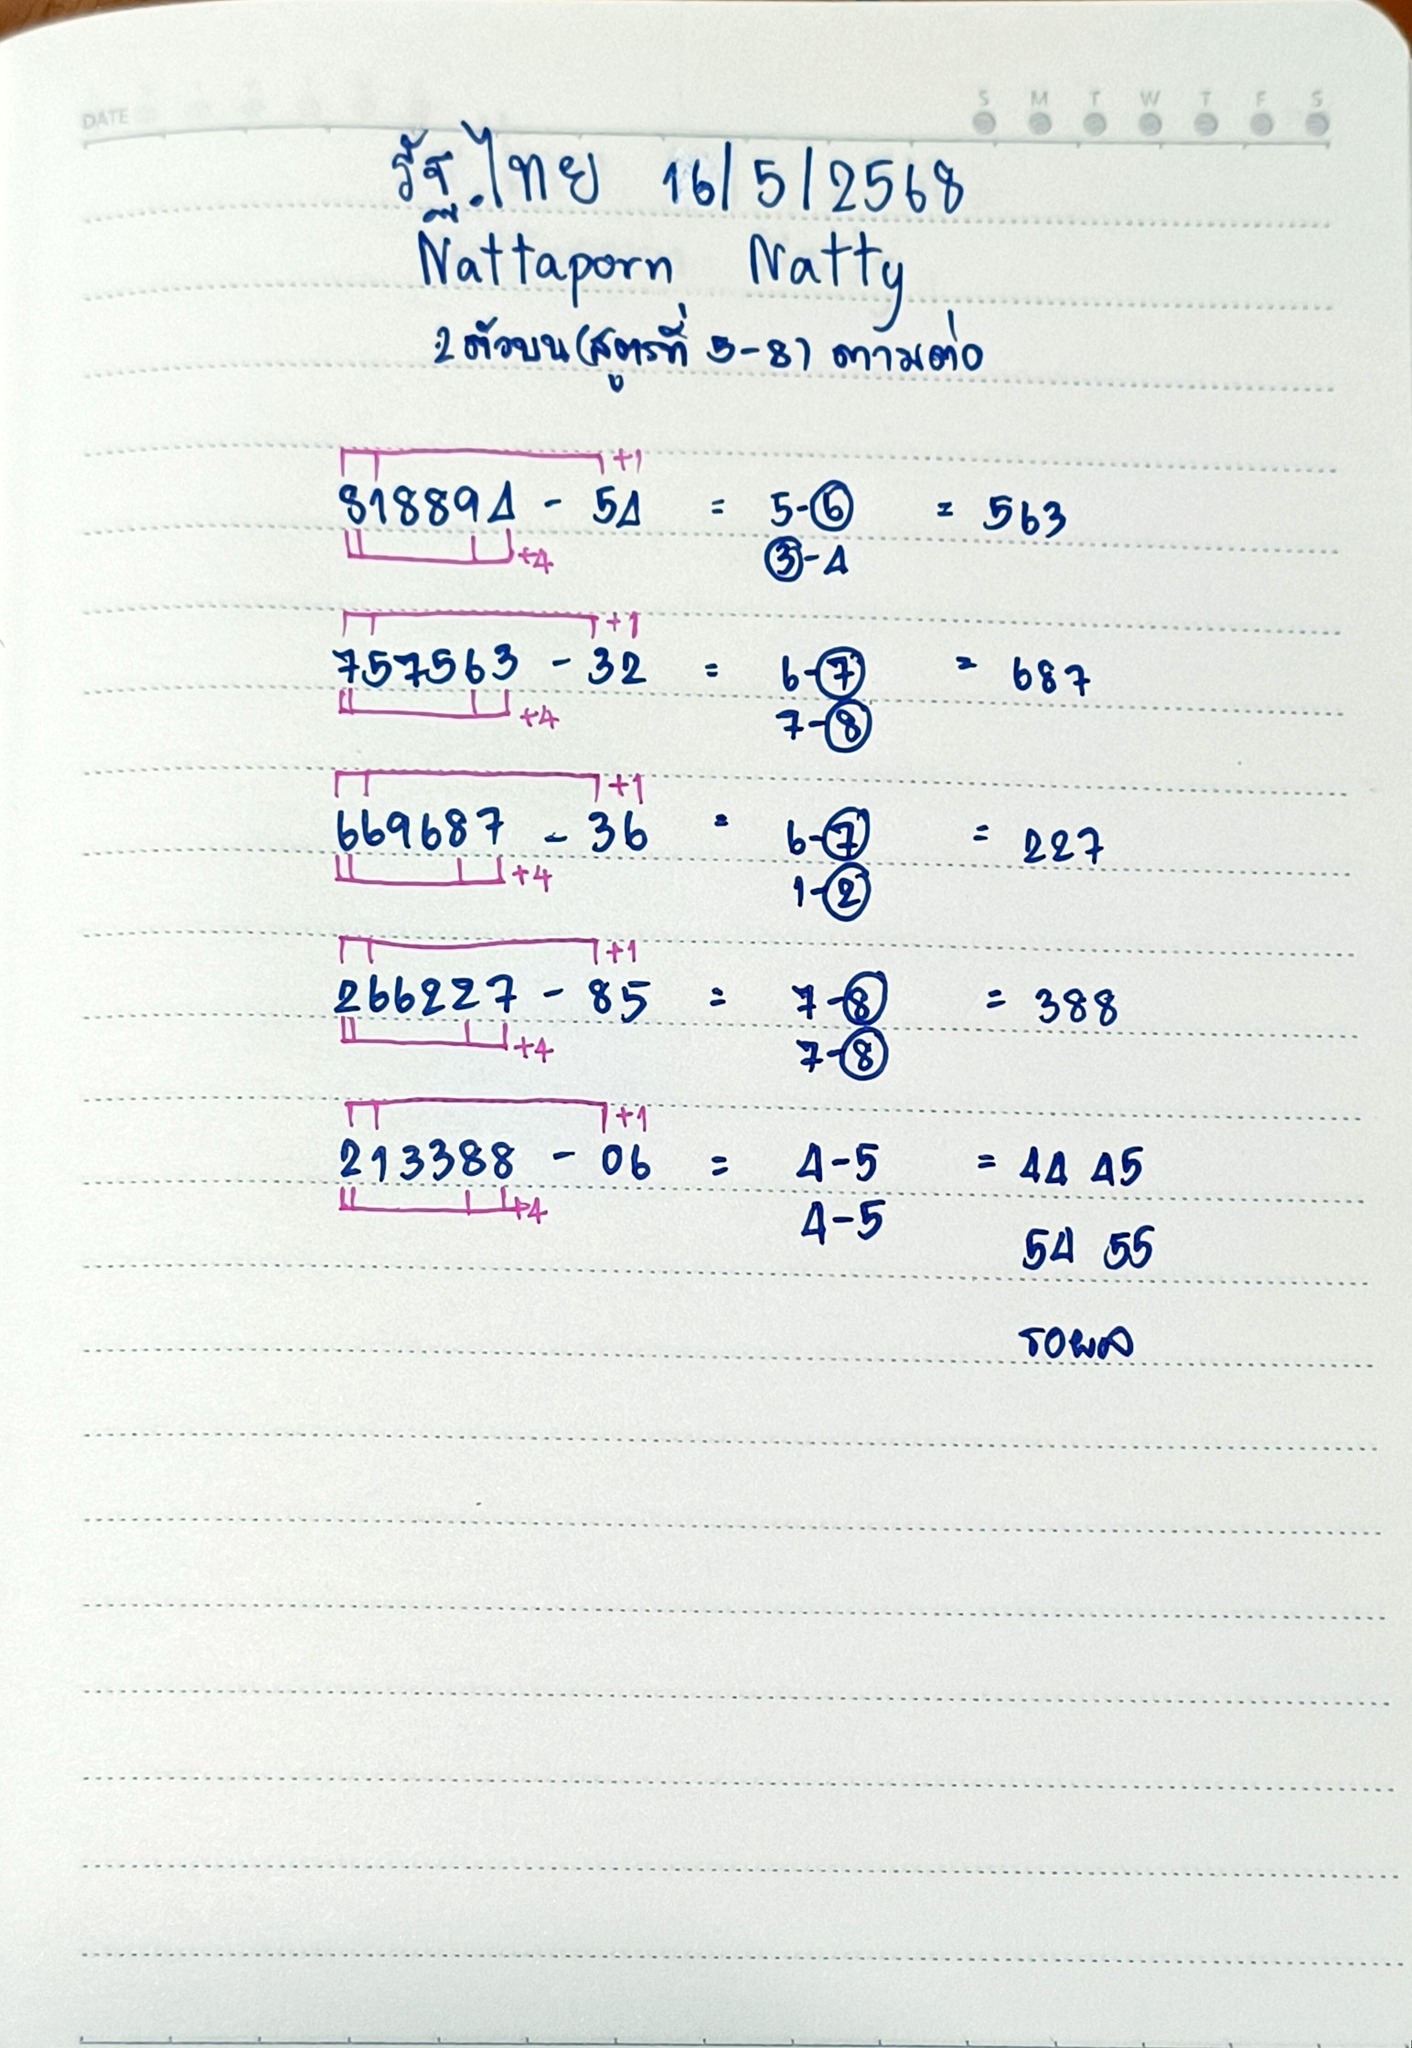 DATE
S M T W T F S
รัฐ.ไทย 16/5/2568
Nattaporn Natty
2 ตัวบน (สูตรที่ 5-8) ตามต่อ
+1
818894 - 54 = 5-6 = 563
+4 3-4
+1
757563 - 32 = 6-7 = 687
+4 7-8
+1
669687 - 36 = 6-7 = 227
+4 1-2
+1
266227 - 85 = 7-8 = 388
+4 7-8
+1
213388 - 06 = 4-5 = 44 45
+4 4-5 54 55
รอผล